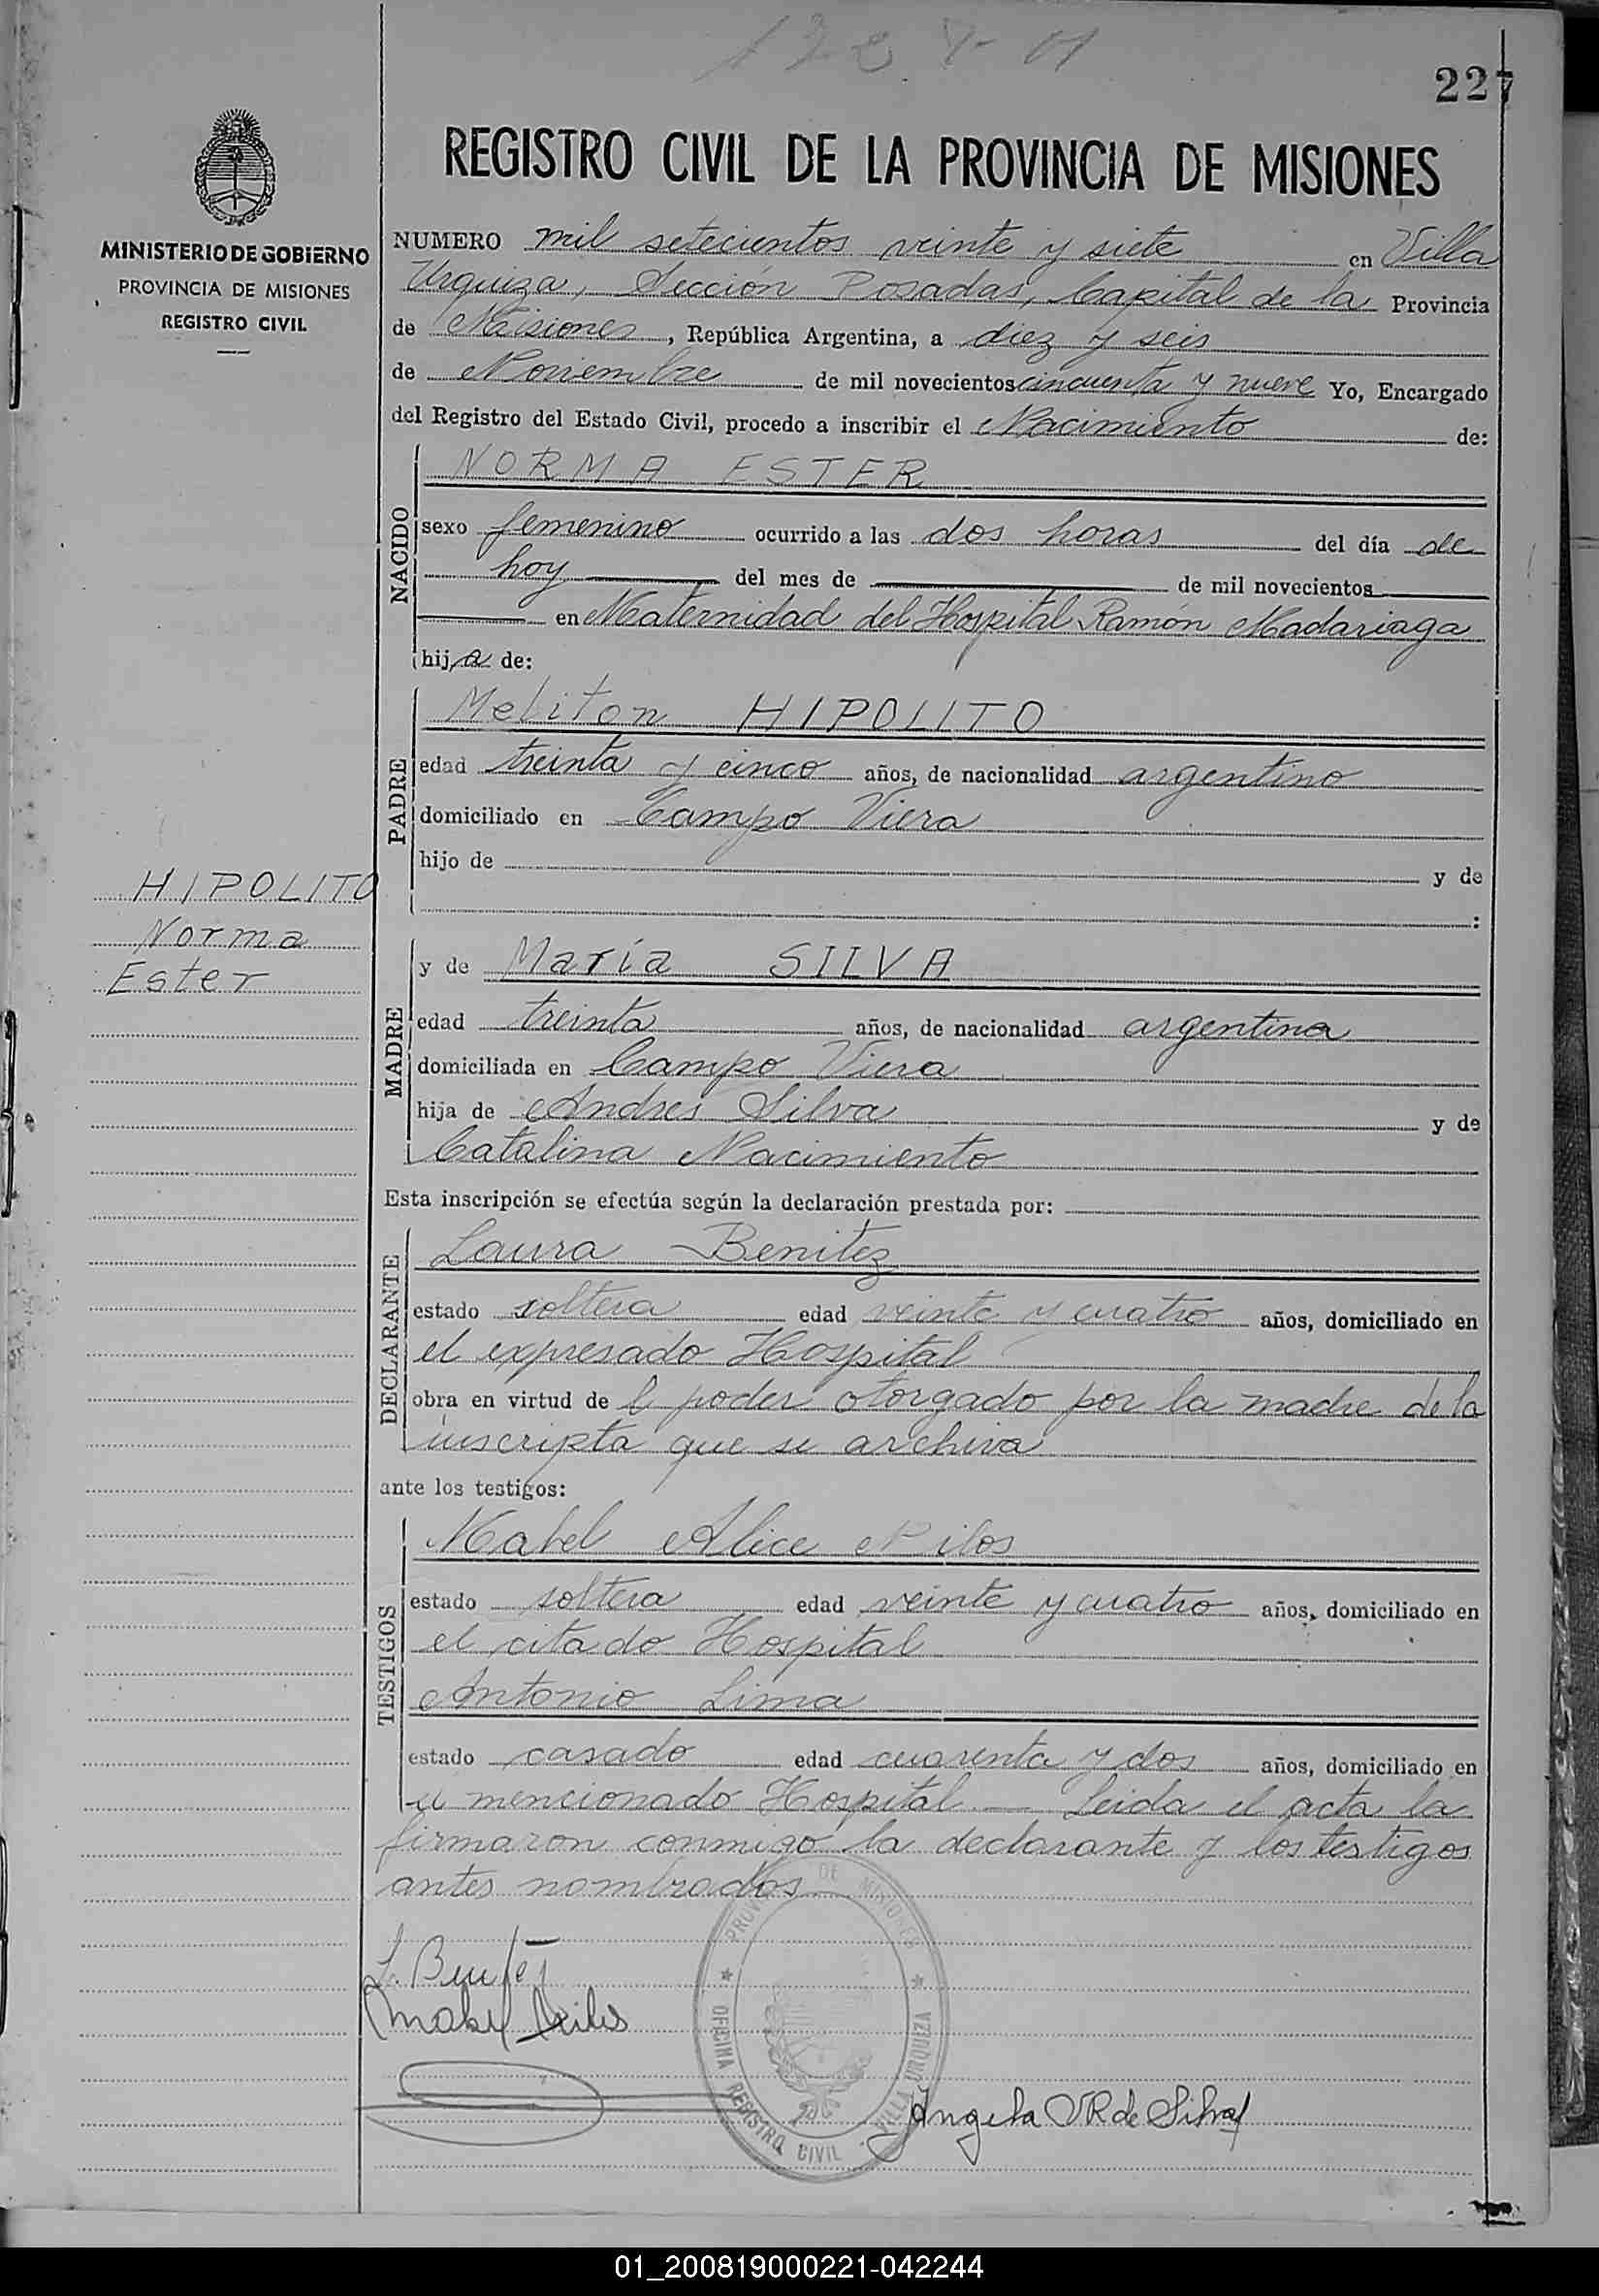 227
REGISTRO CIVIL DE LA PROVINCIA DE MISIONES
MINISTERIO DE GOBIERNO
PROVINCIA DE MISIONES
REGISTRO CIVIL
NUMERO mil setecientos veinte y siete en Villa
Urquiza, Sección Posadas, Capital de la Provincia
de Misiones, República Argentina, a diez y seis
de Noviembre de mil novecientos cincuenta y nueve Yo, Encargado
del Registro del Estado Civil, procedo a inscribir el Nacimiento de:
NACIDO
NORMA ESTER
sexo femenino ocurrido a las dos horas del día de
hoy del mes de de mil novecientos
en Maternidad del Hospital Ramón Madariaga
hija de:
PADRE
Meliton HIPOLITO
edad treinta y cinco años, de nacionalidad argentino
domiciliado en Campo Viera
hijo de y de
:
HIPOLITO
Norma
Ester
MADRE
y de María SILVA
edad treinta años, de nacionalidad argentina
domiciliada en Campo Viera
hija de Andres Silva y de
Catalina Nacimiento
Esta inscripción se efectúa según la declaración prestada por:
DECLARANTE
Laura Benitez
estado soltera edad veinte y cuatro años, domiciliado en
el expresado Hospital
obra en virtud de l poder otorgado por la madre de la
inscripta que se archiva
ante los testigos:
TESTIGOS
Mabel Alice Nilos
estado soltera edad veinte y cuatro años, domiciliado en
el citado Hospital
Antonio Lima
estado casado edad cuarenta y dos años, domiciliado en
el mencionado Hospital. — Leida el acta la
firmaron conmigo la declarante y los testigos
antes nombrados
L. Benitez
Mabel
PROVINCIA DE MISIONES
OFICINA REGISTRO CIVIL VILLA URQUIZA
Angela V R de Silva
01_200819000221-042244